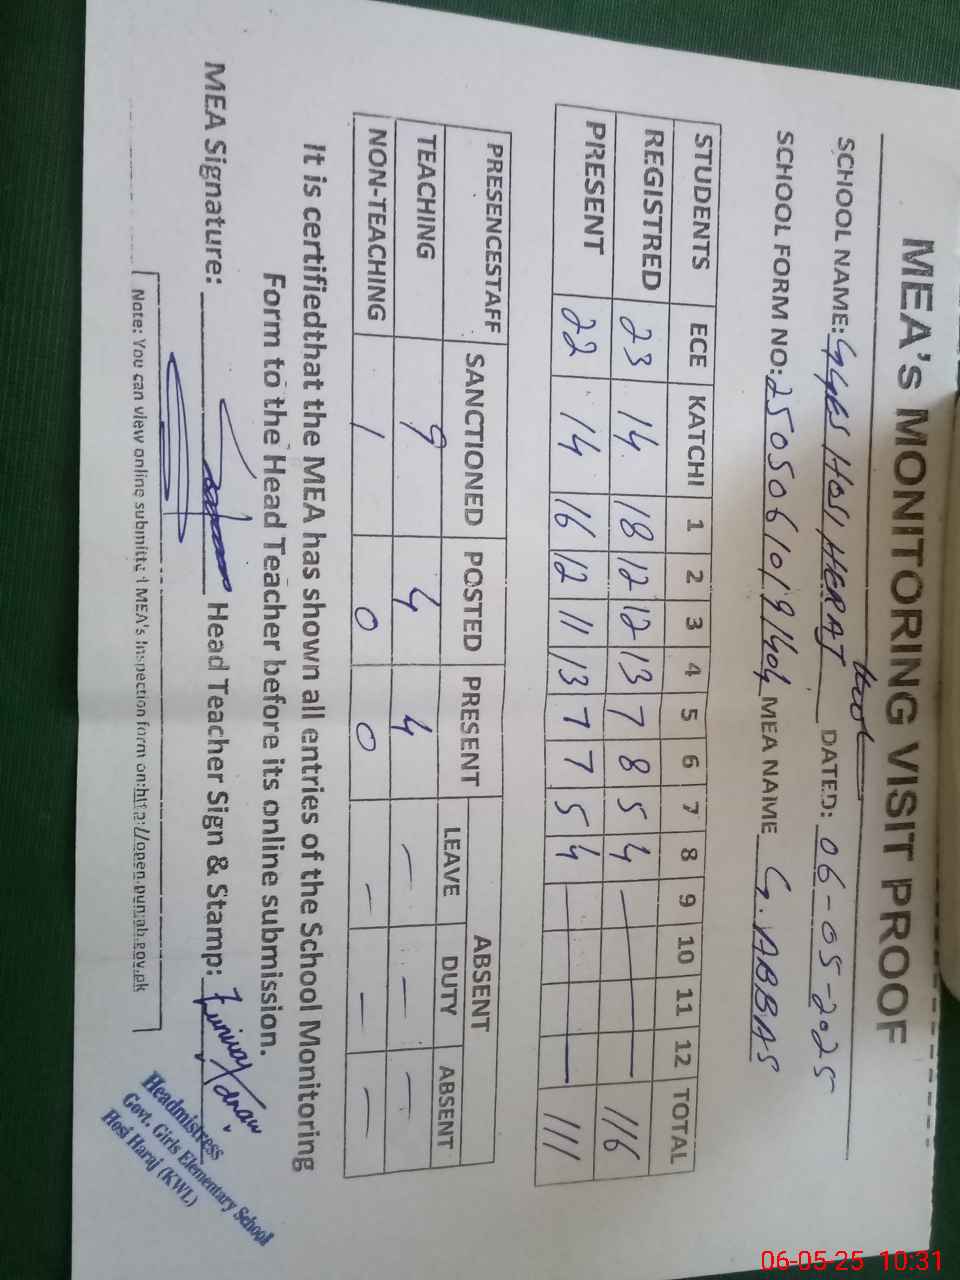 MEA's MONITORING VISIT PROOF
SCHOOL NAME: GGES HOSI HERAJ DATED: 06-05-2025
SCHOOL FORM NO: 25050610191404 MEA NAME G. ABBAS
STUDENTS ECE KATCHI 1 2 3 4 5 6 7 8 9 10 11 12 TOTAL
REGISTRED 23 14 18 12 12 13 7 8 5 4 — 116
PRESENT 22 14 16 12 11 13 7 7 5 4 — — 111
PRESENCESTAFF SANCTIONED POSTED PRESENT ABSENT
LEAVE DUTY ABSENT
TEACHING 9 4 4 — — —
NON-TEACHING 1 0 0 — — —
It is certifiedthat the MEA has shown all entries of the School Monitoring
Form to the Head Teacher before its online submission.
MEA Signature: Head Teacher Sign & Stamp:
Headmistress
Govt. Girls Elementary School
Hosi Haraj (KWL)
Note: You can view online submitted MEA's Inspection form on:http://open.punjab.gov.pk
06-05-25 10:31